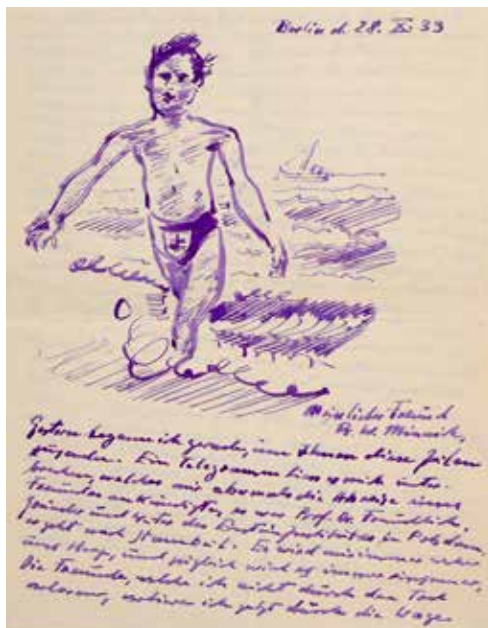 Berlin d. 28. XI 33
Mein lieber Freund
Gestern begann ich gerade, um Ihnen diese Zeilen
zusenden. Ein Telegramm liess mich unter-
brechen, welches mir abermals die Abreise eines
Freundes ankündigte, es war Prof. Dr. Freundlich,
Gründer und Leiter des Einsteininstitutes in Potsdam,
er geht nach Istambul. Es wird um mich immer
und und täglich wird es immer einsamer,
Die Freunde, welche ich nicht durch den Tod
verliere ich jetzt durch die